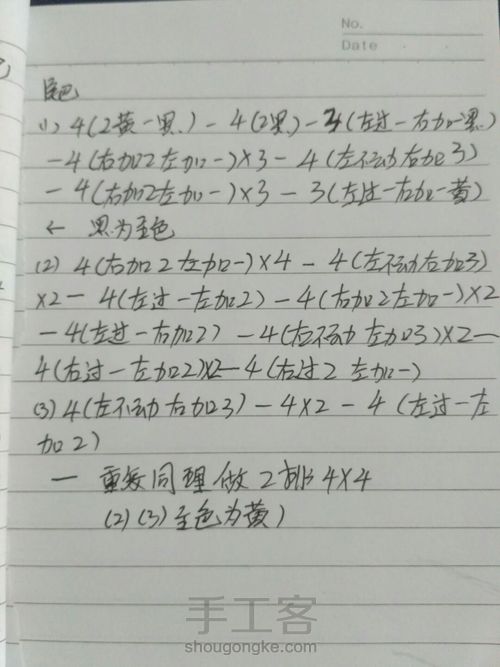 No.
Date
尾巴
(1) 4(2黄一黑) - 4(2黑) - 3(左过一右加一黑)
- 4(右加2左加一)×3 - 4(左不动右加3)
- 4(右加2左加一)×3 - 3(左过一右加一黄)
← 黑为全色
(2) 4(右加2左加一)×4 - 4(左不动右加3)
×2 - 4(左过一左加2) - 4(右加2左加一)×2
- 4(左过一右加2) - 4(右不动左加3)×2 -
4(右过一左加2)×2 - 4(右过2左加一)
(3) 4(左不动右加3) - 4×2 - 4(左过一左
加2)
一 重复同理做2排4×4
(2)(3)全色为黄)
手工客
shougongke.com